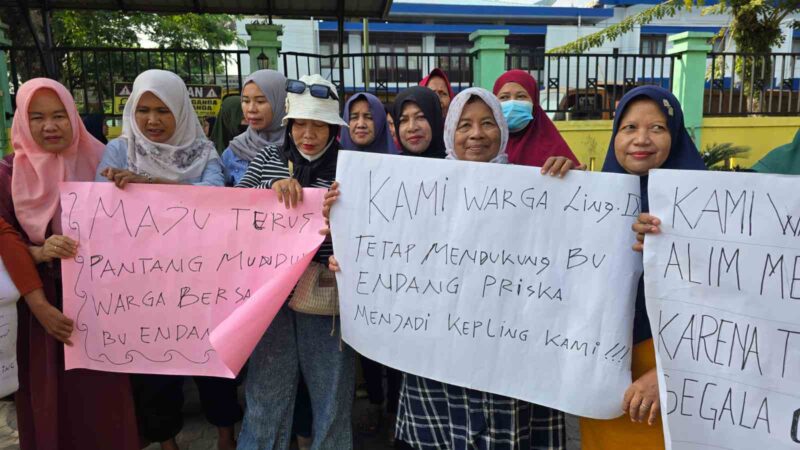 MAJU TERUS
PANTANG MUNDUR
WARGA BERSA
BU ENDAN
KAMI WARGA Ling. II
TETAP MENDUKUNG BU
ENDANG PRISKA
MENJADI KEPLING KAMI !!!
KAMI WA
ALIM ME
KARENA T
SEGALA